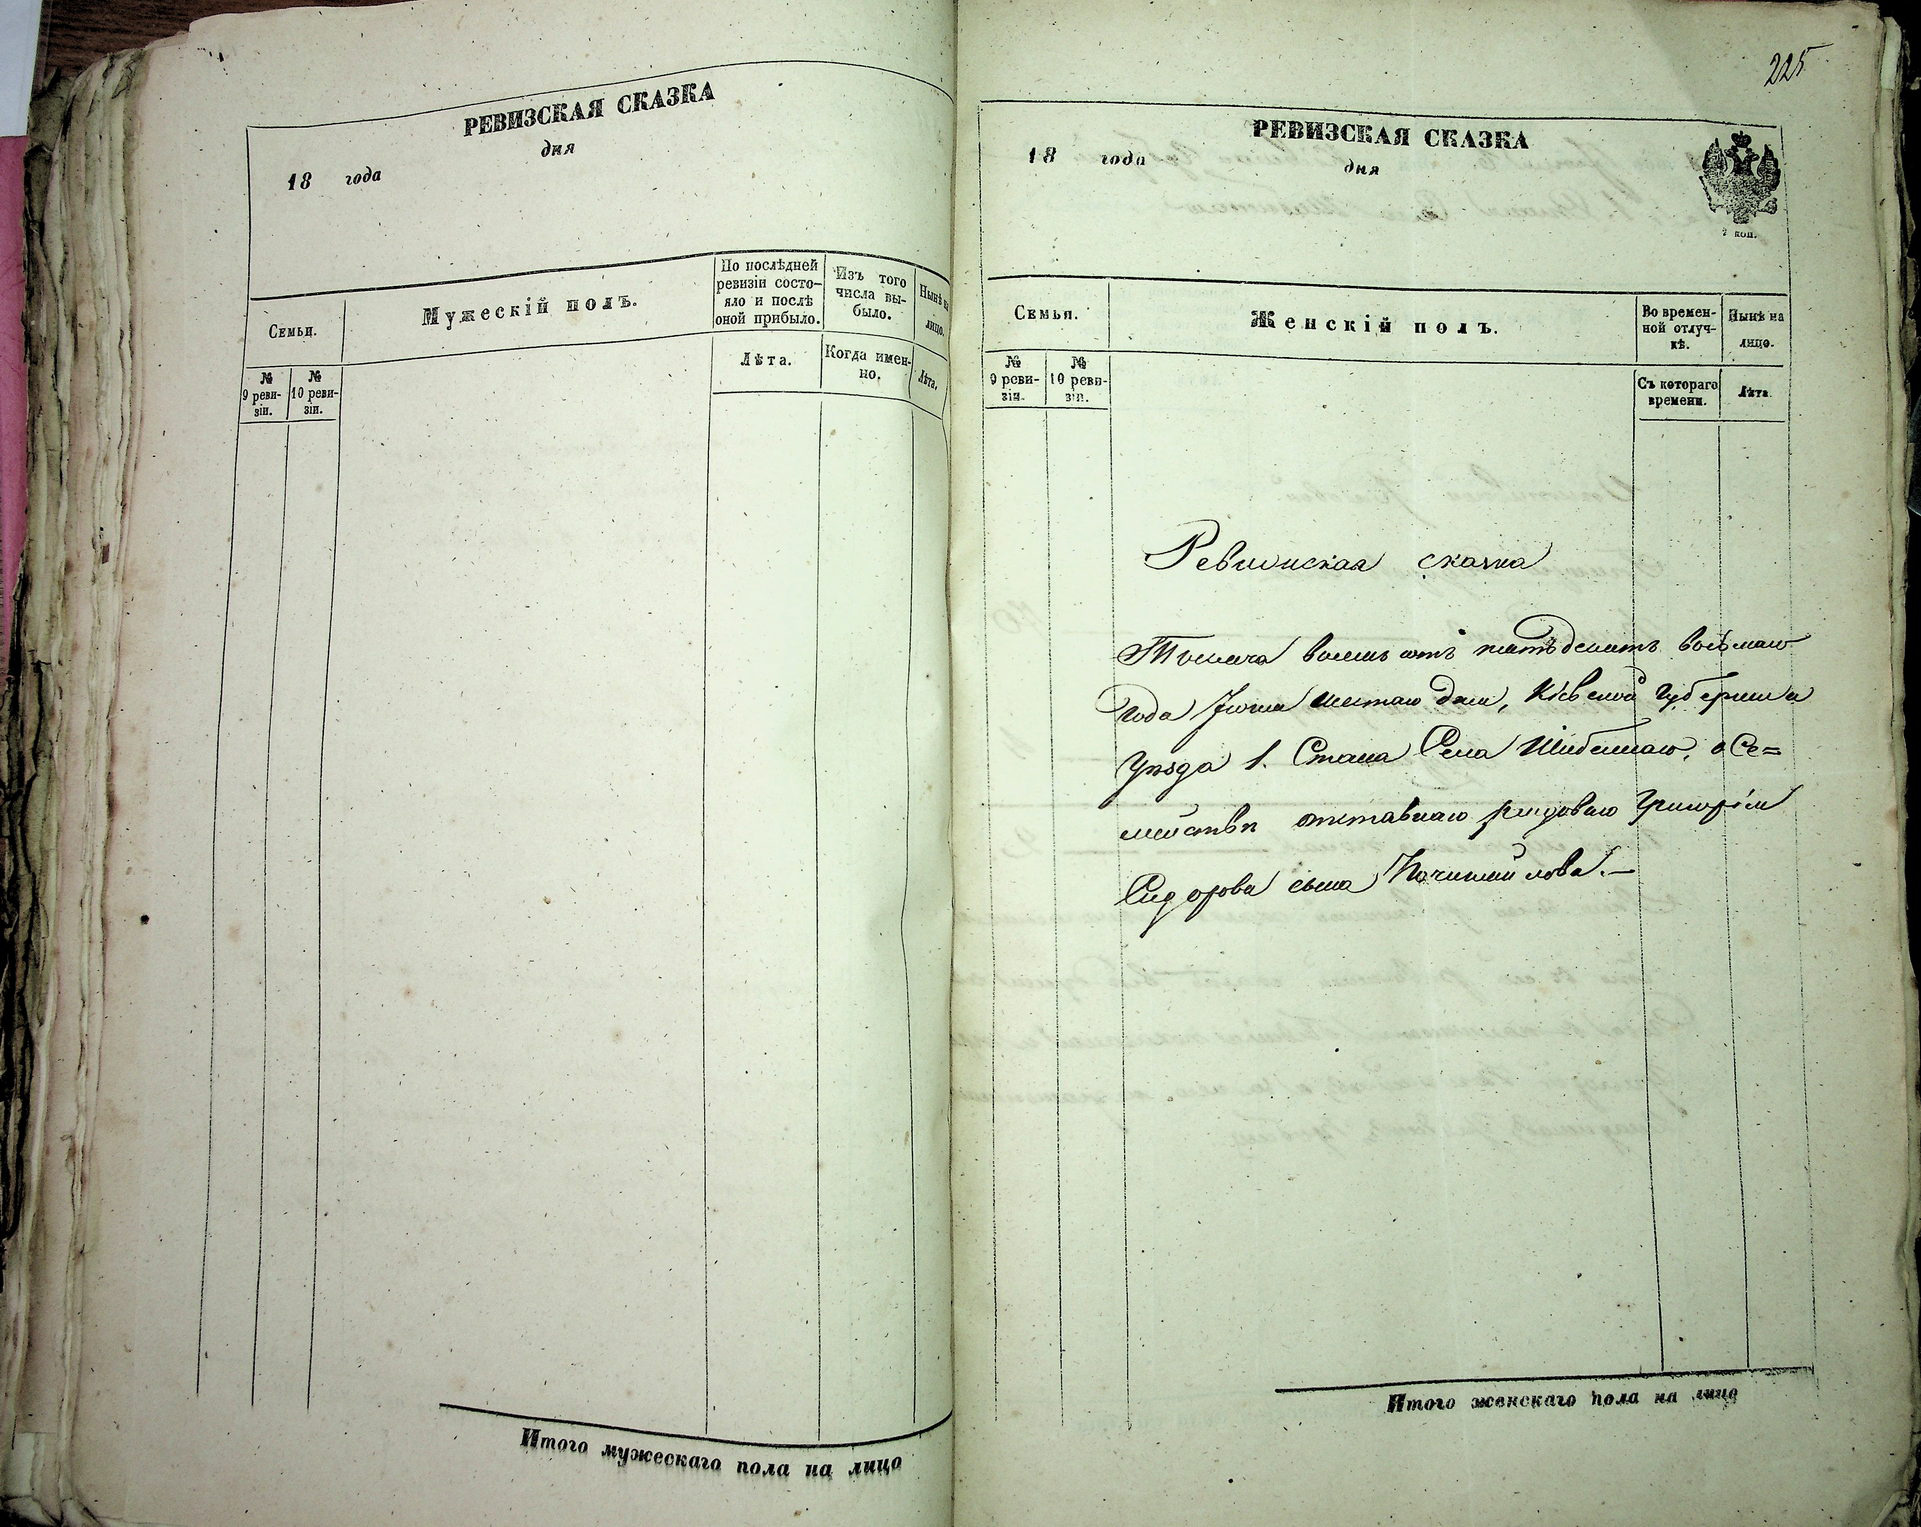 РЕВИЗСКАЯ СКАЗКА
дня
18 года
Семьи.
Мужескій полъ.
По послѣдней ревизіи состо-
яло и послѣ
оной прибыло.
Изъ того
числа вы-
было.
Нынѣ на
лицо.
№
9 реви-
зіи.
№
10 реви-
зіи.
Лѣта.
Когда имен-
но.
Лѣта.
Итого мужескаго пола на лицо
225
РЕВИЗСКАЯ СКАЗКА
18 года
дня
2 коп.
Семья.
Женскій полъ.
Во времен-
ной отлуч-
кѣ.
Нынѣ на
лицо.
№
9 реви-
зіи.
№
10 реви-
зіи.
Съ котораго
времени.
Лѣта.
Ревизская сказка
Тысяча восемьсотъ пятьдесятъ восьмаго
года Іюня шестаго дня, Кіевской Губерніи и
Уѣзда 1. Стана Села Шибеннаго, о Се=
мействѣ отставнаго рядоваго Григорія
Сидорова сына
Итого женскаго пола на лицо